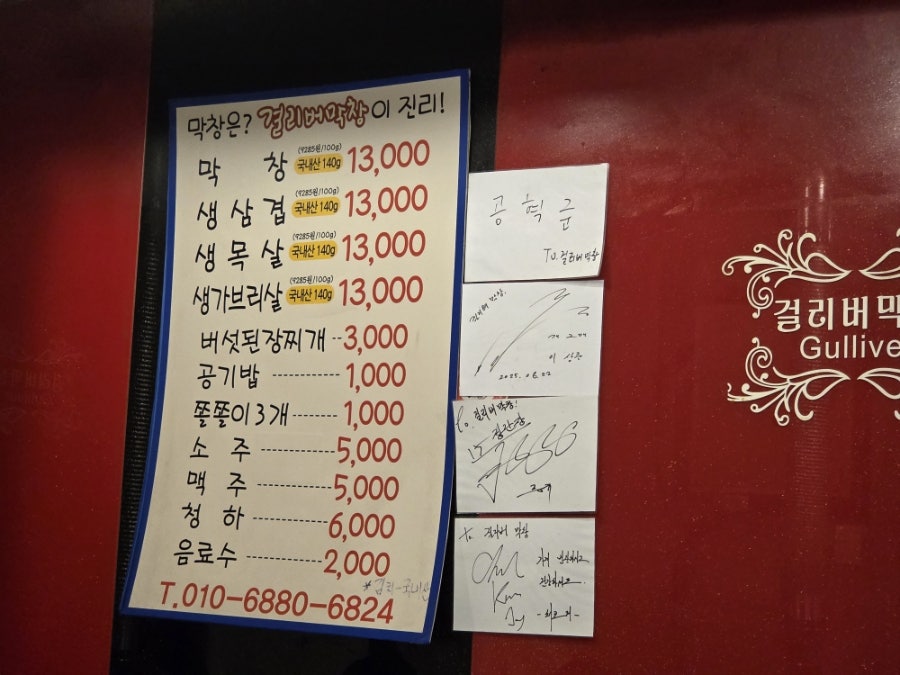 막창은? 걸리버막창이 진리!
(9285원/100g)
막창 국내산 140g 13,000
(9285원/100g)
생삼겹 국내산 140g 13,000
(9285원/100g)
생목살 국내산 140g 13,000
(9285원/100g)
생가브리살 국내산 140g 13,000
버섯된장찌개 3,000
공기밥 1,000
쫄쫄이3개 1,000
소주 5,000
맥주 5,000
청하 6,000
음료수 2,000
T.010-6880-6824
공혁준
To. 걸리버막창
걸리버막창
To. 걸리버막창!
To 걸리버막창
걸리버막
Gullive